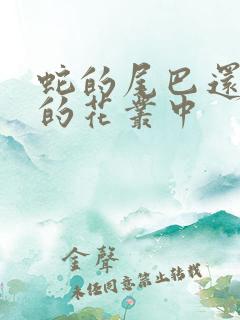 蛇的尾巴還
的花叢中
金聲
未經同意禁止轉載